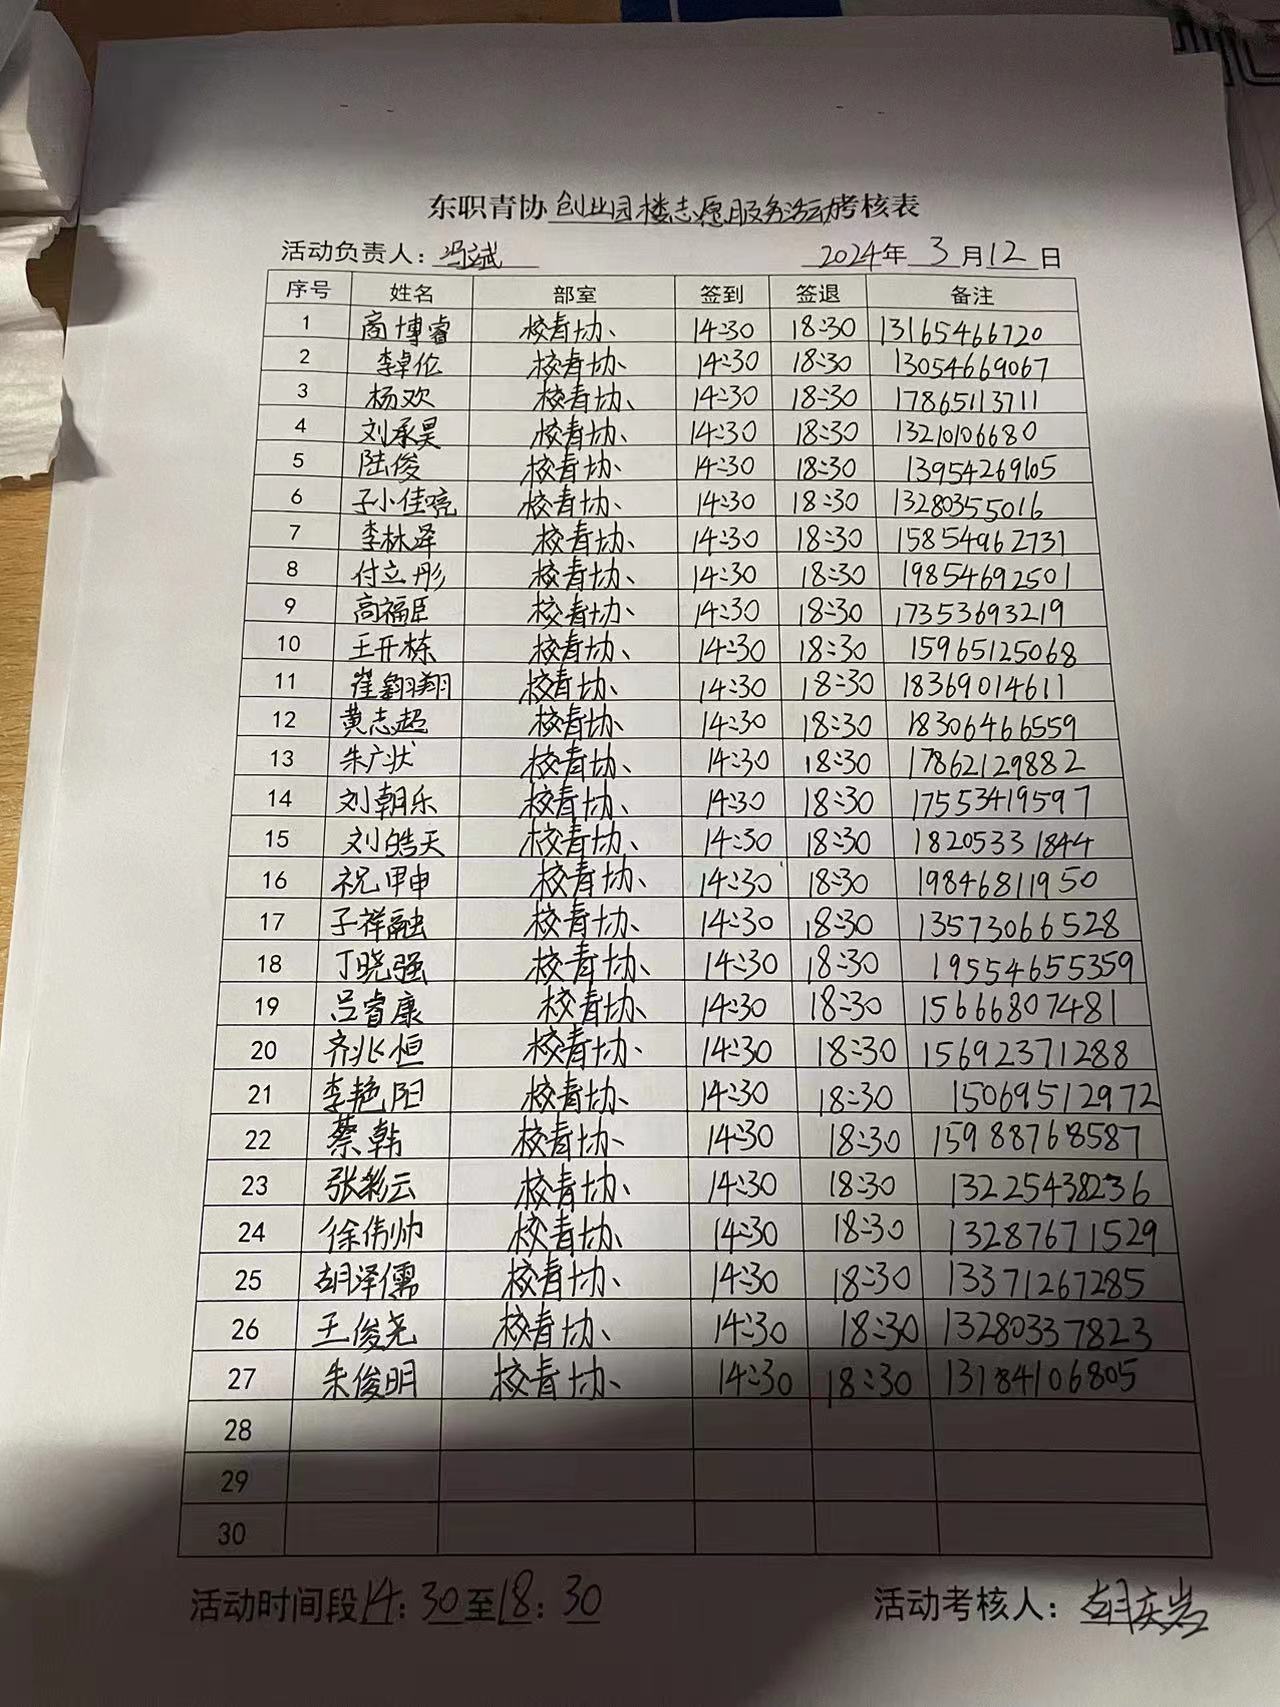 东职青协创业园楼志愿服务活动考核表
活动负责人：冯斌 2024年3月12日
序号 姓名 部室 签到 签退 备注
1 高博睿 校青协 14:30 18:30 13165466720
2 李卓伦 校青协 14:30 18:30 13054669067
3 杨欢 校青协 14:30 18:30 17865113711
4 刘承昊 校青协 14:30 18:30 13210106680
5 陆俊 校青协 14:30 18:30 13954269105
6 子小佳 校青协 14:30 18:30 13280355016
7 李林泽 校青协 14:30 18:30 15854962731
8 付立彤 校青协 14:30 18:30 19854692501
9 高福臣 校青协 14:30 18:30 17353693219
10 王开栋 校青协 14:30 18:30 15965125068
11 崔翱翔 校青协 14:30 18:30 18369014611
12 黄志超 校青协 14:30 18:30 18306466559
13 朱广状 校青协 14:30 18:30 17862129882
14 刘朝乐 校青协 14:30 18:30 17553419597
15 刘皓天 校青协 14:30 18:30 18205331844
16 祝甲申 校青协 14:30 18:30 19846811950
17 子祥融 校青协 14:30 18:30 13573066528
18 丁晓强 校青协 14:30 18:30 19554655359
19 吕睿康 校青协 14:30 18:30 15666807481
20 齐兆恒 校青协 14:30 18:30 15692371288
21 李艳阳 校青协 14:30 18:30 15069512972
22 蔡韩 校青协 14:30 18:30 15988768587
23 张彩云 校青协 14:30 18:30 13225438236
24 徐伟帅 校青协 14:30 18:30 13287671529
25 胡泽儒 校青协 14:30 18:30 13371267285
26 王俊尧 校青协 14:30 18:30 13280337823
27 朱俊明 校青协 14:30 18:30 13184106805
28
29
30
活动时间段14：30至18：30 活动考核人：胡庆岩